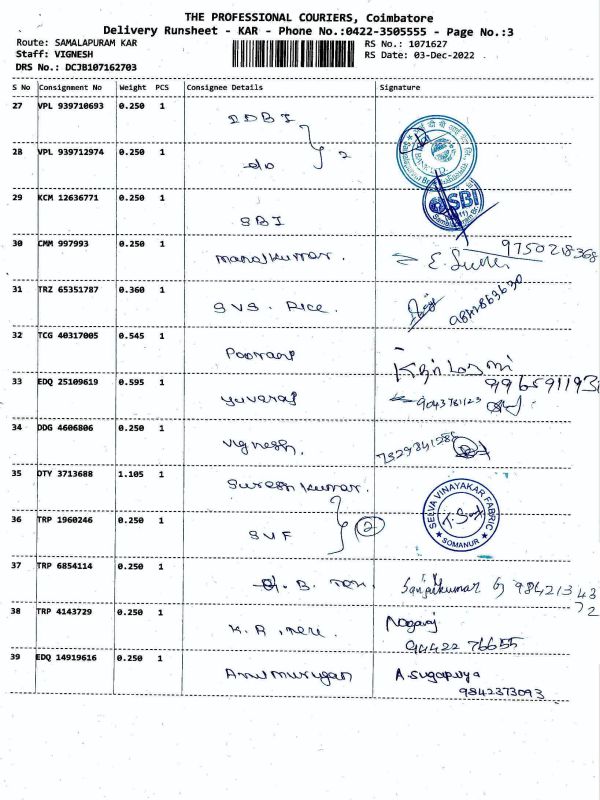 THE PROFESSIONAL COURIERS, Coimbatore
Delivery Runsheet - KAR - Phone No.:0422-3505555 - Page No.:3
Route: SAMALAPURAM KAR
RS No.: 1071627
Staff: VIGNESH
RS Date: 03-Dec-2022
DRS No.: DCJB107162703
S No Consignment No Weight PCS Consignee Details Signature
27 VPL 939710693 0.250 1 IDBI
28 VPL 939712974 0.250 1 do 2
29 KCM 12636771 0.250 1 SBI SBI
30 CMM 997993 0.250 1 Manojkumar. 9750218368
31 TRZ 65351787 0.360 1 SVS. Rice.
32 TCG 40317005 0.545 1 Poorani
33 EDQ 25109619 0.595 1 yuvaraj 996591193
9043781123
34 DDG 4606806 0.250 1 Vignesh. 7329841285
35 DTY 3713688 1.105 1 Suresh kumar. SELVA VINAYAKAR FABRIC
36 TRP 1960246 0.250 1 SVF 2 SOMANUR
37 TRP 6854114 0.250 1 B. Tex. Sanjaikumar G 98421343
72
38 TRP 4143729 0.250 1 K.R. Tex. Nagaraj
94422 76655
39 EDQ 14919616 0.250 1 Arulmurugan A.sugapriya
9842373093